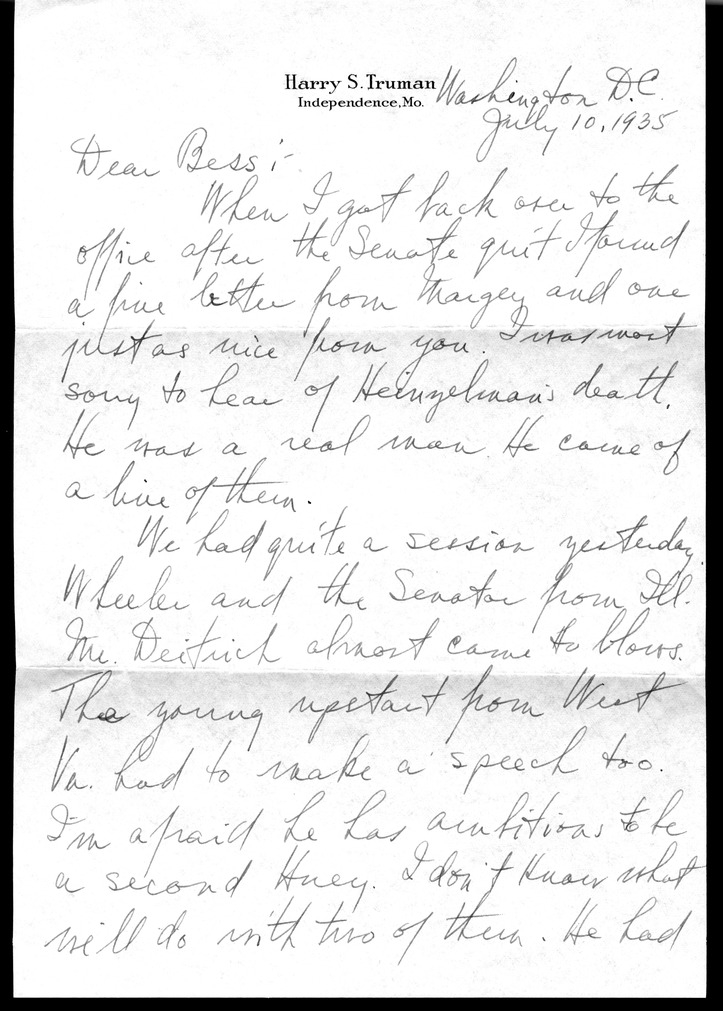 Harry S. Truman
Independence, Mo.
Washington D.C.
July 10, 1935
Dear Bess:-
When I got back over to the
office after the Senate quit I found
a fine letter from Margey and one
just as nice from you. I was most
sorry to hear of Heinzelman's death.
He was a real man. He came of
a line of them.
We had quite a session yesterday.
Wheeler and the Senator from Ill.
Mr. Deitrich almost came to blows.
The young upstart from West
Va. had to make a speech too.
I'm afraid he has ambitions to be
a second Huey. I don't know what
we'll do with two of them. He had